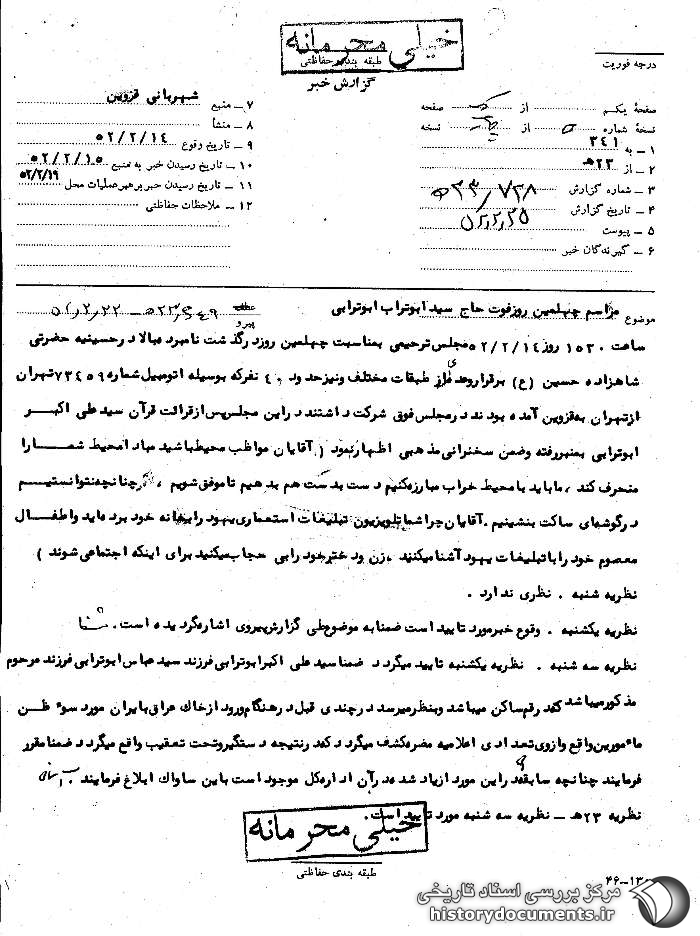 خیلی محرمانه
طبقه بندی حفاظتی
گزارش خبر
درجه فوریت
صفحهٔ یکم از صفحه
نسخهٔ شماره از نسخه
۱ – به ۳۴۱
۲ – از ۲۳هـ
۳ – شماره گزارش
۴ – تاریخ گزارش
۵ – پیوست
۶ – گیرندگان خبر
۷ – منبع شهربانی قزوین
۸ – منشا
۹ – تاریخ وقوع ۵۲/۲/۱۴
۱۰ – تاریخ رسیدن خبر به منبع ۵۲/۲/۱۵
۱۱ – تاریخ رسیدن خبر برهبر عملیات محل ۵۲/۲/۱۹
۱۲ – ملاحظات حفاظتی
موضوع مراسم چهلمین روز فوت حاج سید ابوتراب ابوترابی
پیرو
ساعت ۱۵۳۰ روز ۵۲/۲/۱۴ مجلس ترحیمی بمناسبت چهلمین روز درگذشت نامبرده بالا در حسینیه حضرتی
شاهزاده حسین (ع) برقرار و عده ای از طبقات مختلف و نیز حدود ۴۰ نفر که بوسیله اتومبیل شماره ۷۳۴۵۹ تهران
از تهران به قزوین آمده بودند در مجلس فوق شرکت داشتند در این مجلس پس از قرائت قرآن سید علی اکبر
ابوترابی بمنبر رفته وضمن سخنرانی مذهبی اظهار نمود ( آقایان مواظب محیط باشید مبادا محیط شما را
منحرف کند ، ما باید با محیط خراب مبارزه کنیم دست بدست هم بدهیم تا موفق شویم ، گرچنانچه نتوانستیم
در گوشه‌ای ساکت بنشینیم . آقایان چرا شما تلویزیون تبلیغات استعماری یهود را بخانه خود برده اید و اطفال
معصوم خود را با تبلیغات یهود آشنا میکنند ، زن و دختر خود را بی حجاب میکنید برای اینکه اجتماعی شوند )
نظریه شنبه . نظری ندارد .
نظریه یکشنبه . وقوع خبر مورد تایید است ضمنا به موضوع طی گزارش پیروی اشاره گردیده است .
نظریه سه شنبه . نظریه یکشنبه تایید میگردد ضمنا سید علی اکبر ابوترابی فرزند سید عباس ابوترابی فرزند مرحوم
مذکور میباشد که در قم ساکن میباشد وبنظر میرسد در چندی قبل در هنگام ورود از خاک عراق با ایران مورد سوء ظن
مامورین واقع و از وی تعدادی اعلامیه مضره کشف میگردد که در نتیجه دستگیر و تحت تعقیب واقع میگردد ضمنا مقرر
فرمایند چنانچه سابقه ای در این مورد از یاد شده در آن اداره کل موجود است باین ساواک ابلاغ فرمایند .
نظریه ۲۳هـ – نظریه سه شنبه مورد تایید است .
خیلی محرمانه
طبقه بندی حفاظتی
مرکز بررسی اسناد تاریخی
historydocuments.ir